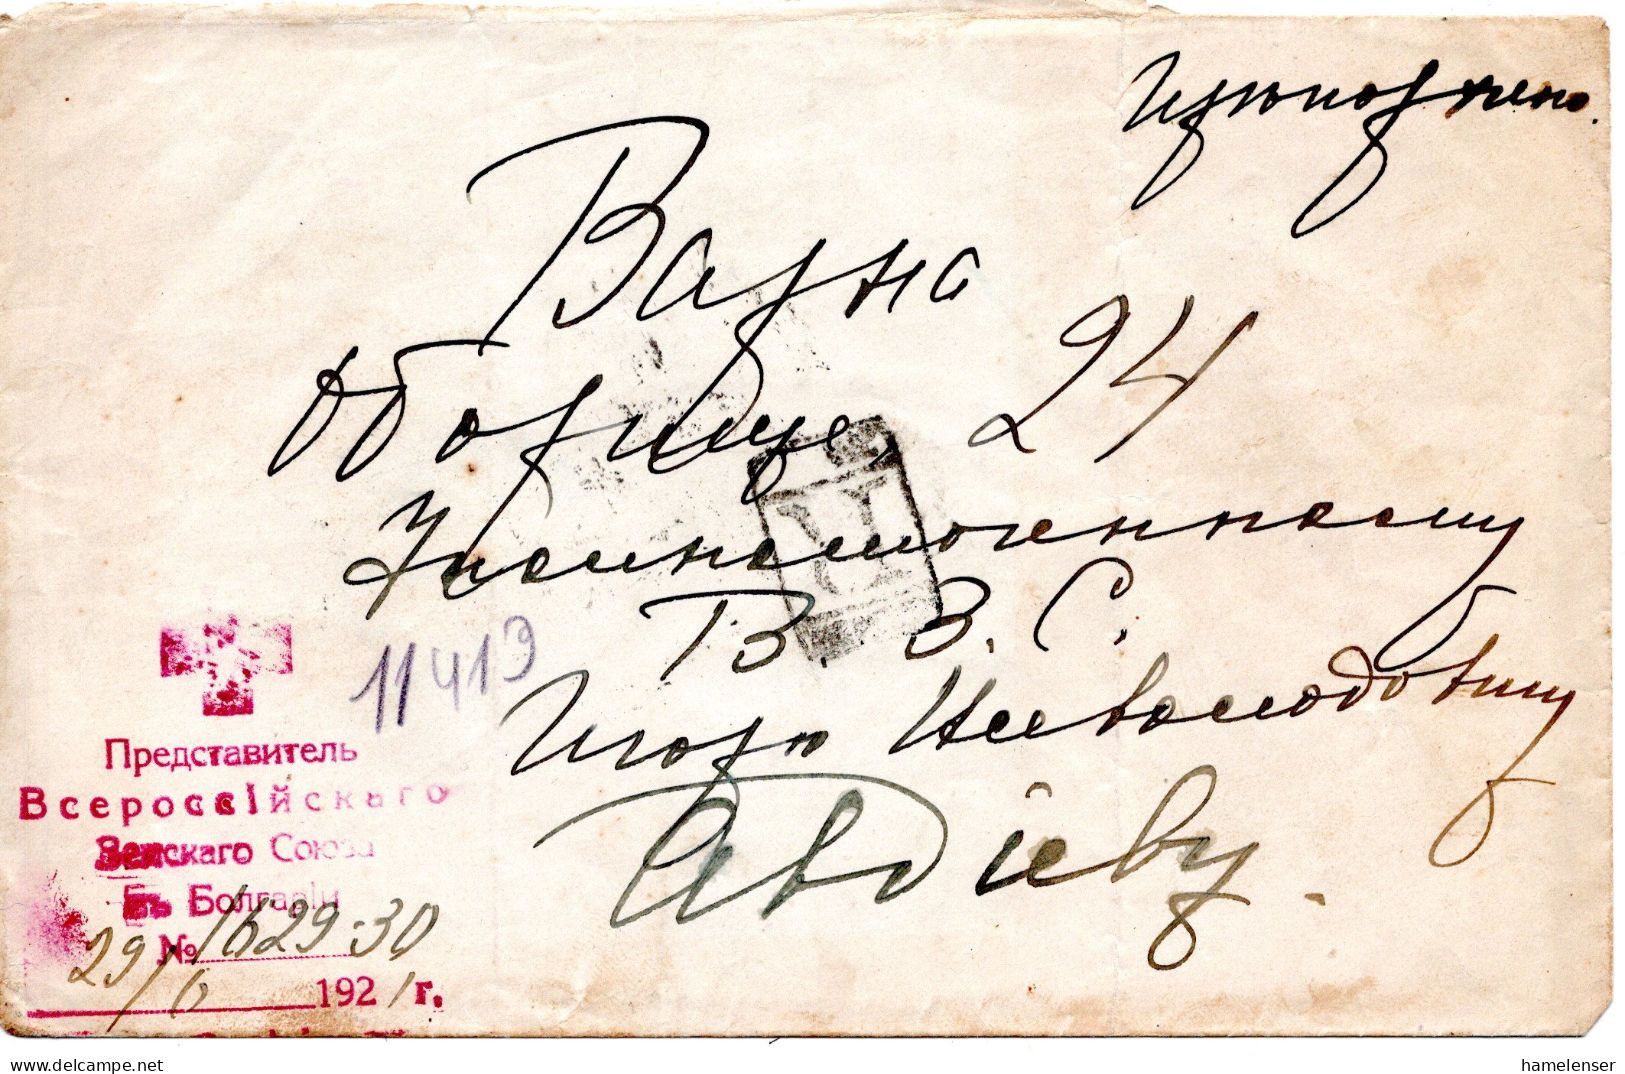 Препоручено.
Варна
Оборище, 24
Уполномоченному
В. З. С.
Игорю Всеволодовичу
Авдіеву.
11413
Представитель
Всероссійскаго
Земскаго Союза
въ Болгаріи
№ 1629-30
29/
1921 г.
hamelenser